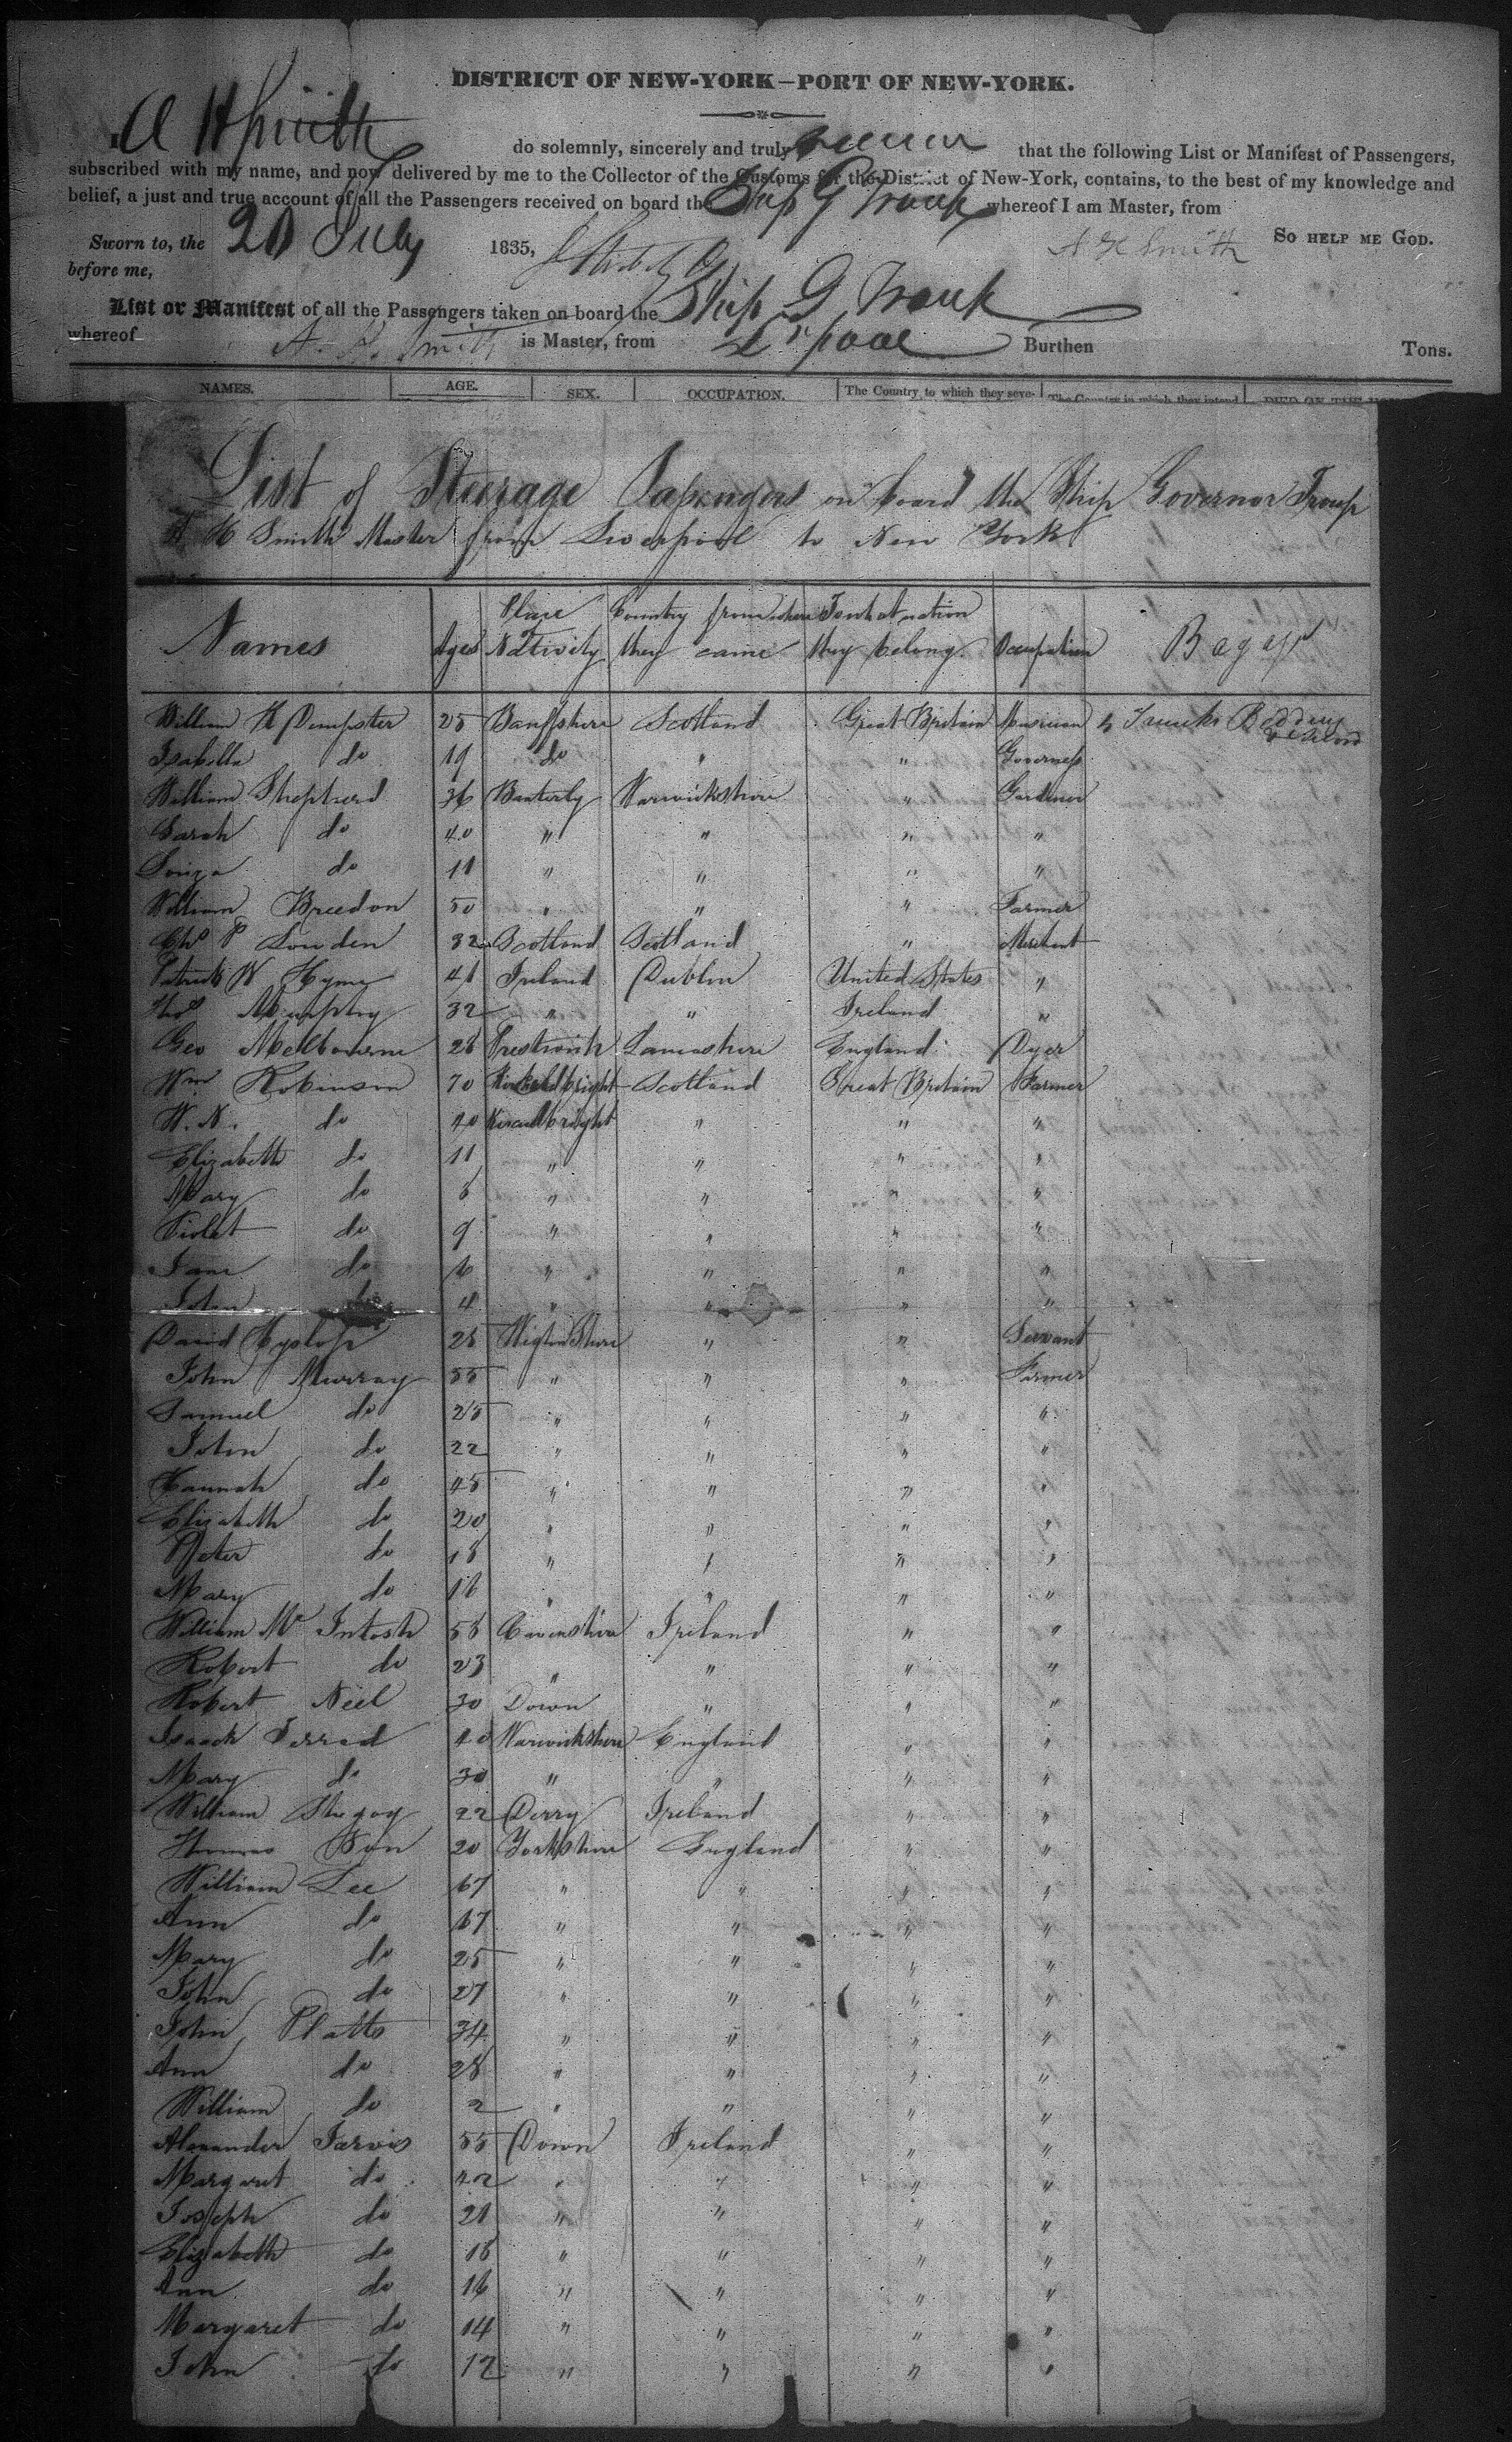 DISTRICT OF NEW-YORK—PORT OF NEW-YORK.
A H Smith do solemnly, sincerely and truly swear that the following List or Manifest of Passengers,
subscribed with my name, and now delivered by me to the Collector of the Customs for the District of New-York, contains, to the best of my knowledge and
belief, a just and true account of all the Passengers received on board the Ship G Troup whereof I am Master, from
Sworn to, the 20 July 1835, A H Smith SO HELP ME GOD.
before me,
List or Manifest of all the Passengers taken on board the Ship G Troup
whereof A. H. Smith is Master, from L'pool Burthen Tons.
NAMES. AGE. SEX. OCCUPATION. The Country to which they seve- The Country in which they intend
List of Steerage Passengers on board the Ship Governor Troup
A H Smith Master from Liverpool to New York
Names Ages Place Nativity Country from where they came To what nation they belong Occupation
William H Dempster 25 Banffshire Scotland Great Britain Musician 4 Trunks Bedding
Isabella do 19 do " " Governess
William Shepherd 36 Banterly Warwickshire " Gardener
Sarah do 40 " " " "
Louiza do 11 " " " "
William Breedon 50 " " " Farmer
Chs P Louden 32 Scotland Scotland " Merchant
Patrick W Hyme 41 Ireland Dublin United States "
Thos Murphy 32 " " Ireland "
Geo Mellbourne 28 Prestwich Lancashire England Dyer
Wm Robinson 70 Kirkcudbright Scotland Great Britain Farmer
W. N. do 40 Kircudbright " " "
Elizabeth do 11 " " " "
Mary do " " " "
Violet do 9 " " " "
Jane do 6 " " " "
John do 4 " " " "
David Hyslop 28 Wigton Shire " " Servant
John Murray 55 " " " Farmer
Samuel do 25 " " " "
John do 22 " " " "
Hannah do 45 " " " "
Elizabeth do 20 " " " "
Peter do 18 " " " "
Mary do 16 " " " "
William Mc Intosh 58 Cavanshire Ireland " "
Robert do 23 " " " "
Robert Neil 30 Down " " "
Isaack Jerrad 40 Warwickshire England " "
Mary do 30 " " " "
William 22 Derry Ireland " "
Thomas 20 Yorkshire England " "
William Lee 67 " " " "
Ann do 67 " " " "
Mary do 25 " " " "
John do 27 " " " "
John Platts 34 " " " "
Ann do 28 " " " "
William do 2 " " " "
Alexander Jarvis 55 Down Ireland " "
Margaret do 42 " " " "
Joseph do 21 " " " "
Elizabeth do 18 " " " "
Ann do 16 " " " "
Margaret do 14 " " " "
John do 12 " " " "